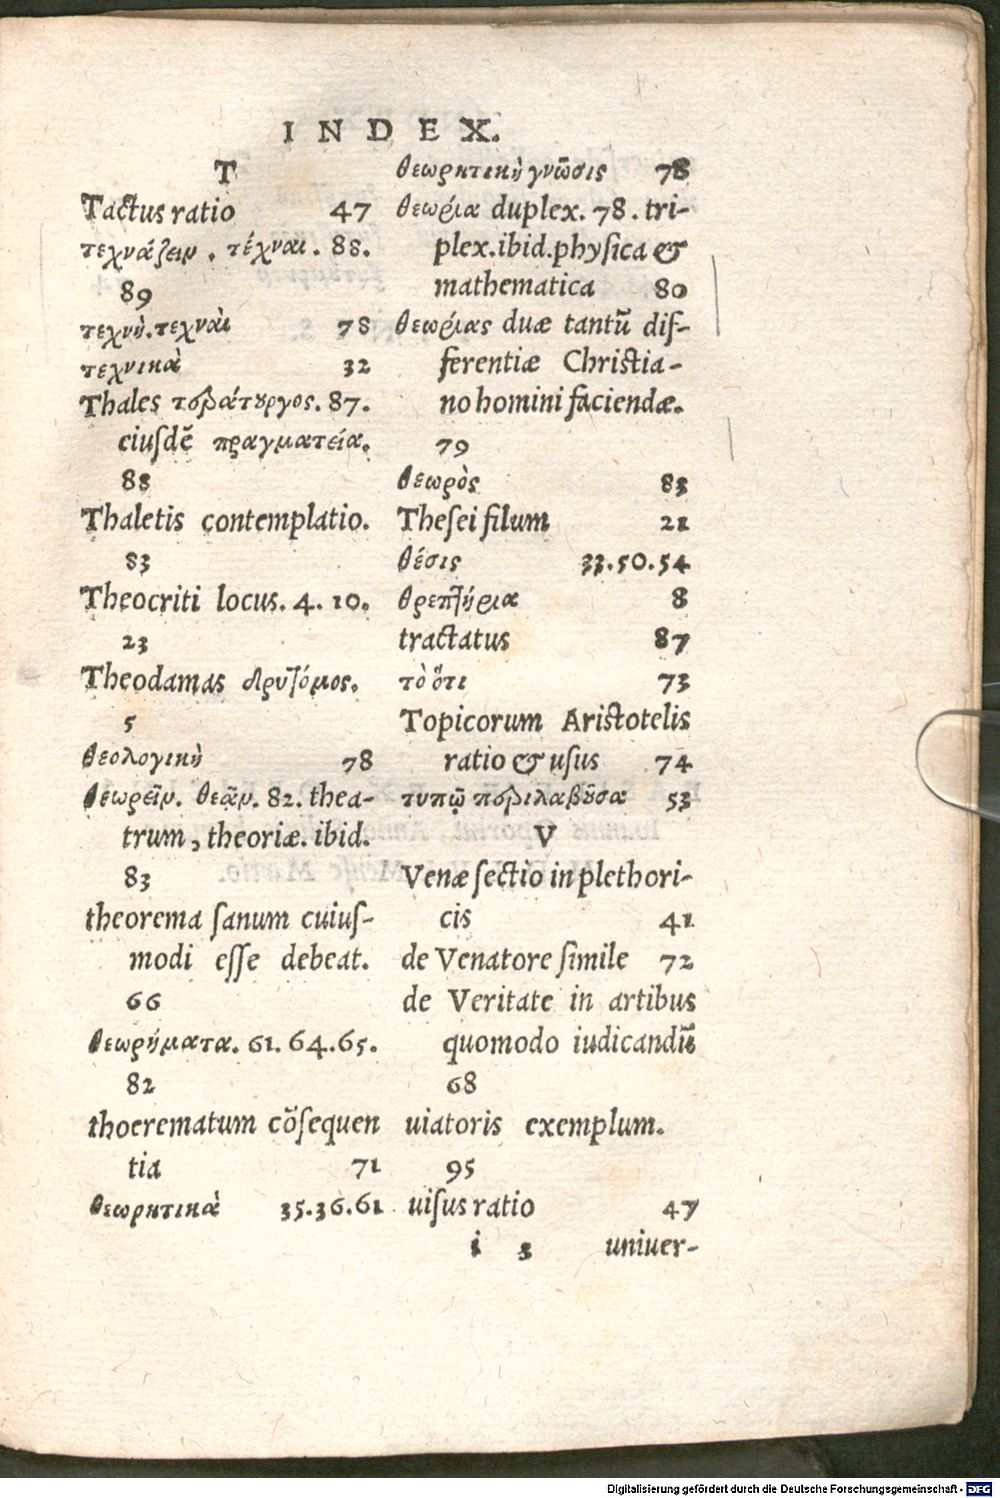 INDEX.
T
Tactus ratio 47
τεχνάζειν. τέχναι. 88.
89
τεχνὴ. τεχναὶ 78
τεχνικὰ 32
Thales τερατουργος. 87.
eiusdē πραγματεία.
88
Thaletis contemplatio.
83
Theocriti locus. 4. 10.
23
Theodamas δρυτόμος.
5
θεολογικὴ 78
θεωρεῖν. θεᾶν. 82. thea-
trum, theoriæ. ibid.
83
theorema sanum cuiuſ-
modi eſſe debeat.
66
θεωρήματα. 61. 64. 65.
82
thoerematum cōſequen
tia 71
θεωρητικὰ 35. 36. 61
θεωρητικὴ γνῶσις 78
θεωρία duplex. 78. tri-
plex. ibid. phyſica &
mathematica 80
θεωρίας duæ tantū dif-
ferentiæ Chriſtia-
no homini faciendæ.
79
θεωρὸς 83
Theſei filum 21
θέσις 33. 50. 54
θρεπτήρια 8
tractatus 87
τὸ ὅτι 73
Topicorum Ariſtotelis
ratio & uſus 74
τυπῷ περιλαβοῦσα 53
V
Venæ ſectio in plethori-
cis 41
de Venatore ſimile 72
de Veritate in artibus
quomodo iudicandū
68
uiatoris exemplum.
95
uiſus ratio 47
i 3 uniuer-
Digitalisierung gefördert durch die Deutsche Forschungsgemeinschaft - DFG